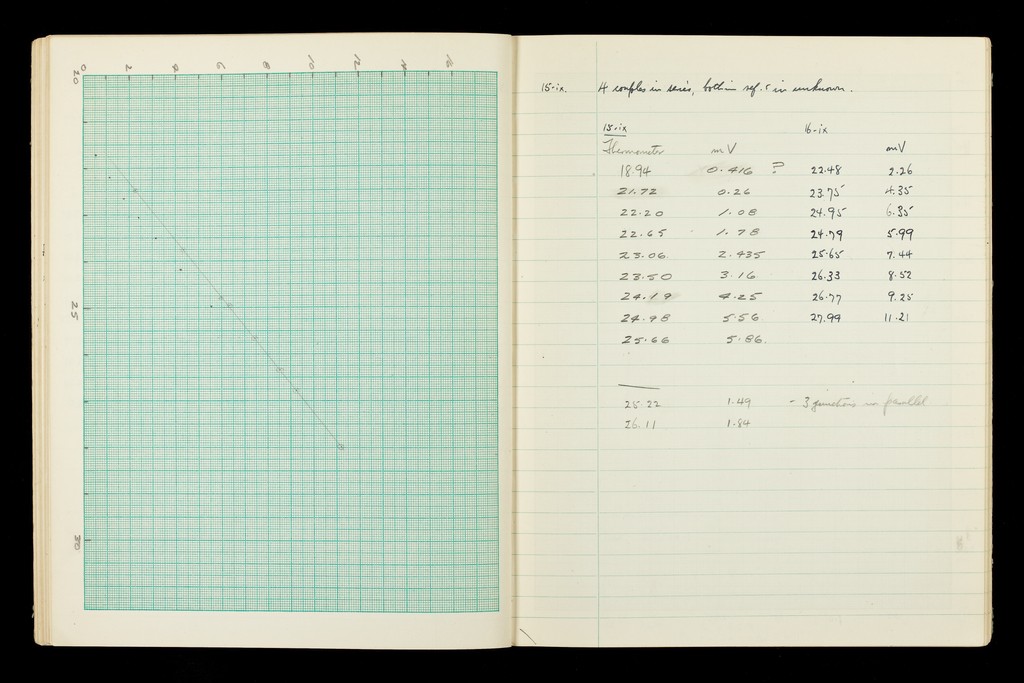 0 2 4 6 8 10 12 14 16
20
25
30
15-ix. 4 couples in series, both in ref. & in unknown.
15-ix 16-ix
Thermometer mV mV
18.94 0.416 ? 22.48 2.26
21.72 0.26 23.75 4.35
22.20 1.08 24.95 6.35
22.65 1.78 24.79 5.99
23.06 2.435 25.65 7.44
23.50 3.16 26.33 8.52
24.19 4.25 26.77 9.25
24.98 5.56 27.99 11.21
25.66 5.86
25.22 1.49 - 3 junctions in parallel
26.11 1.84